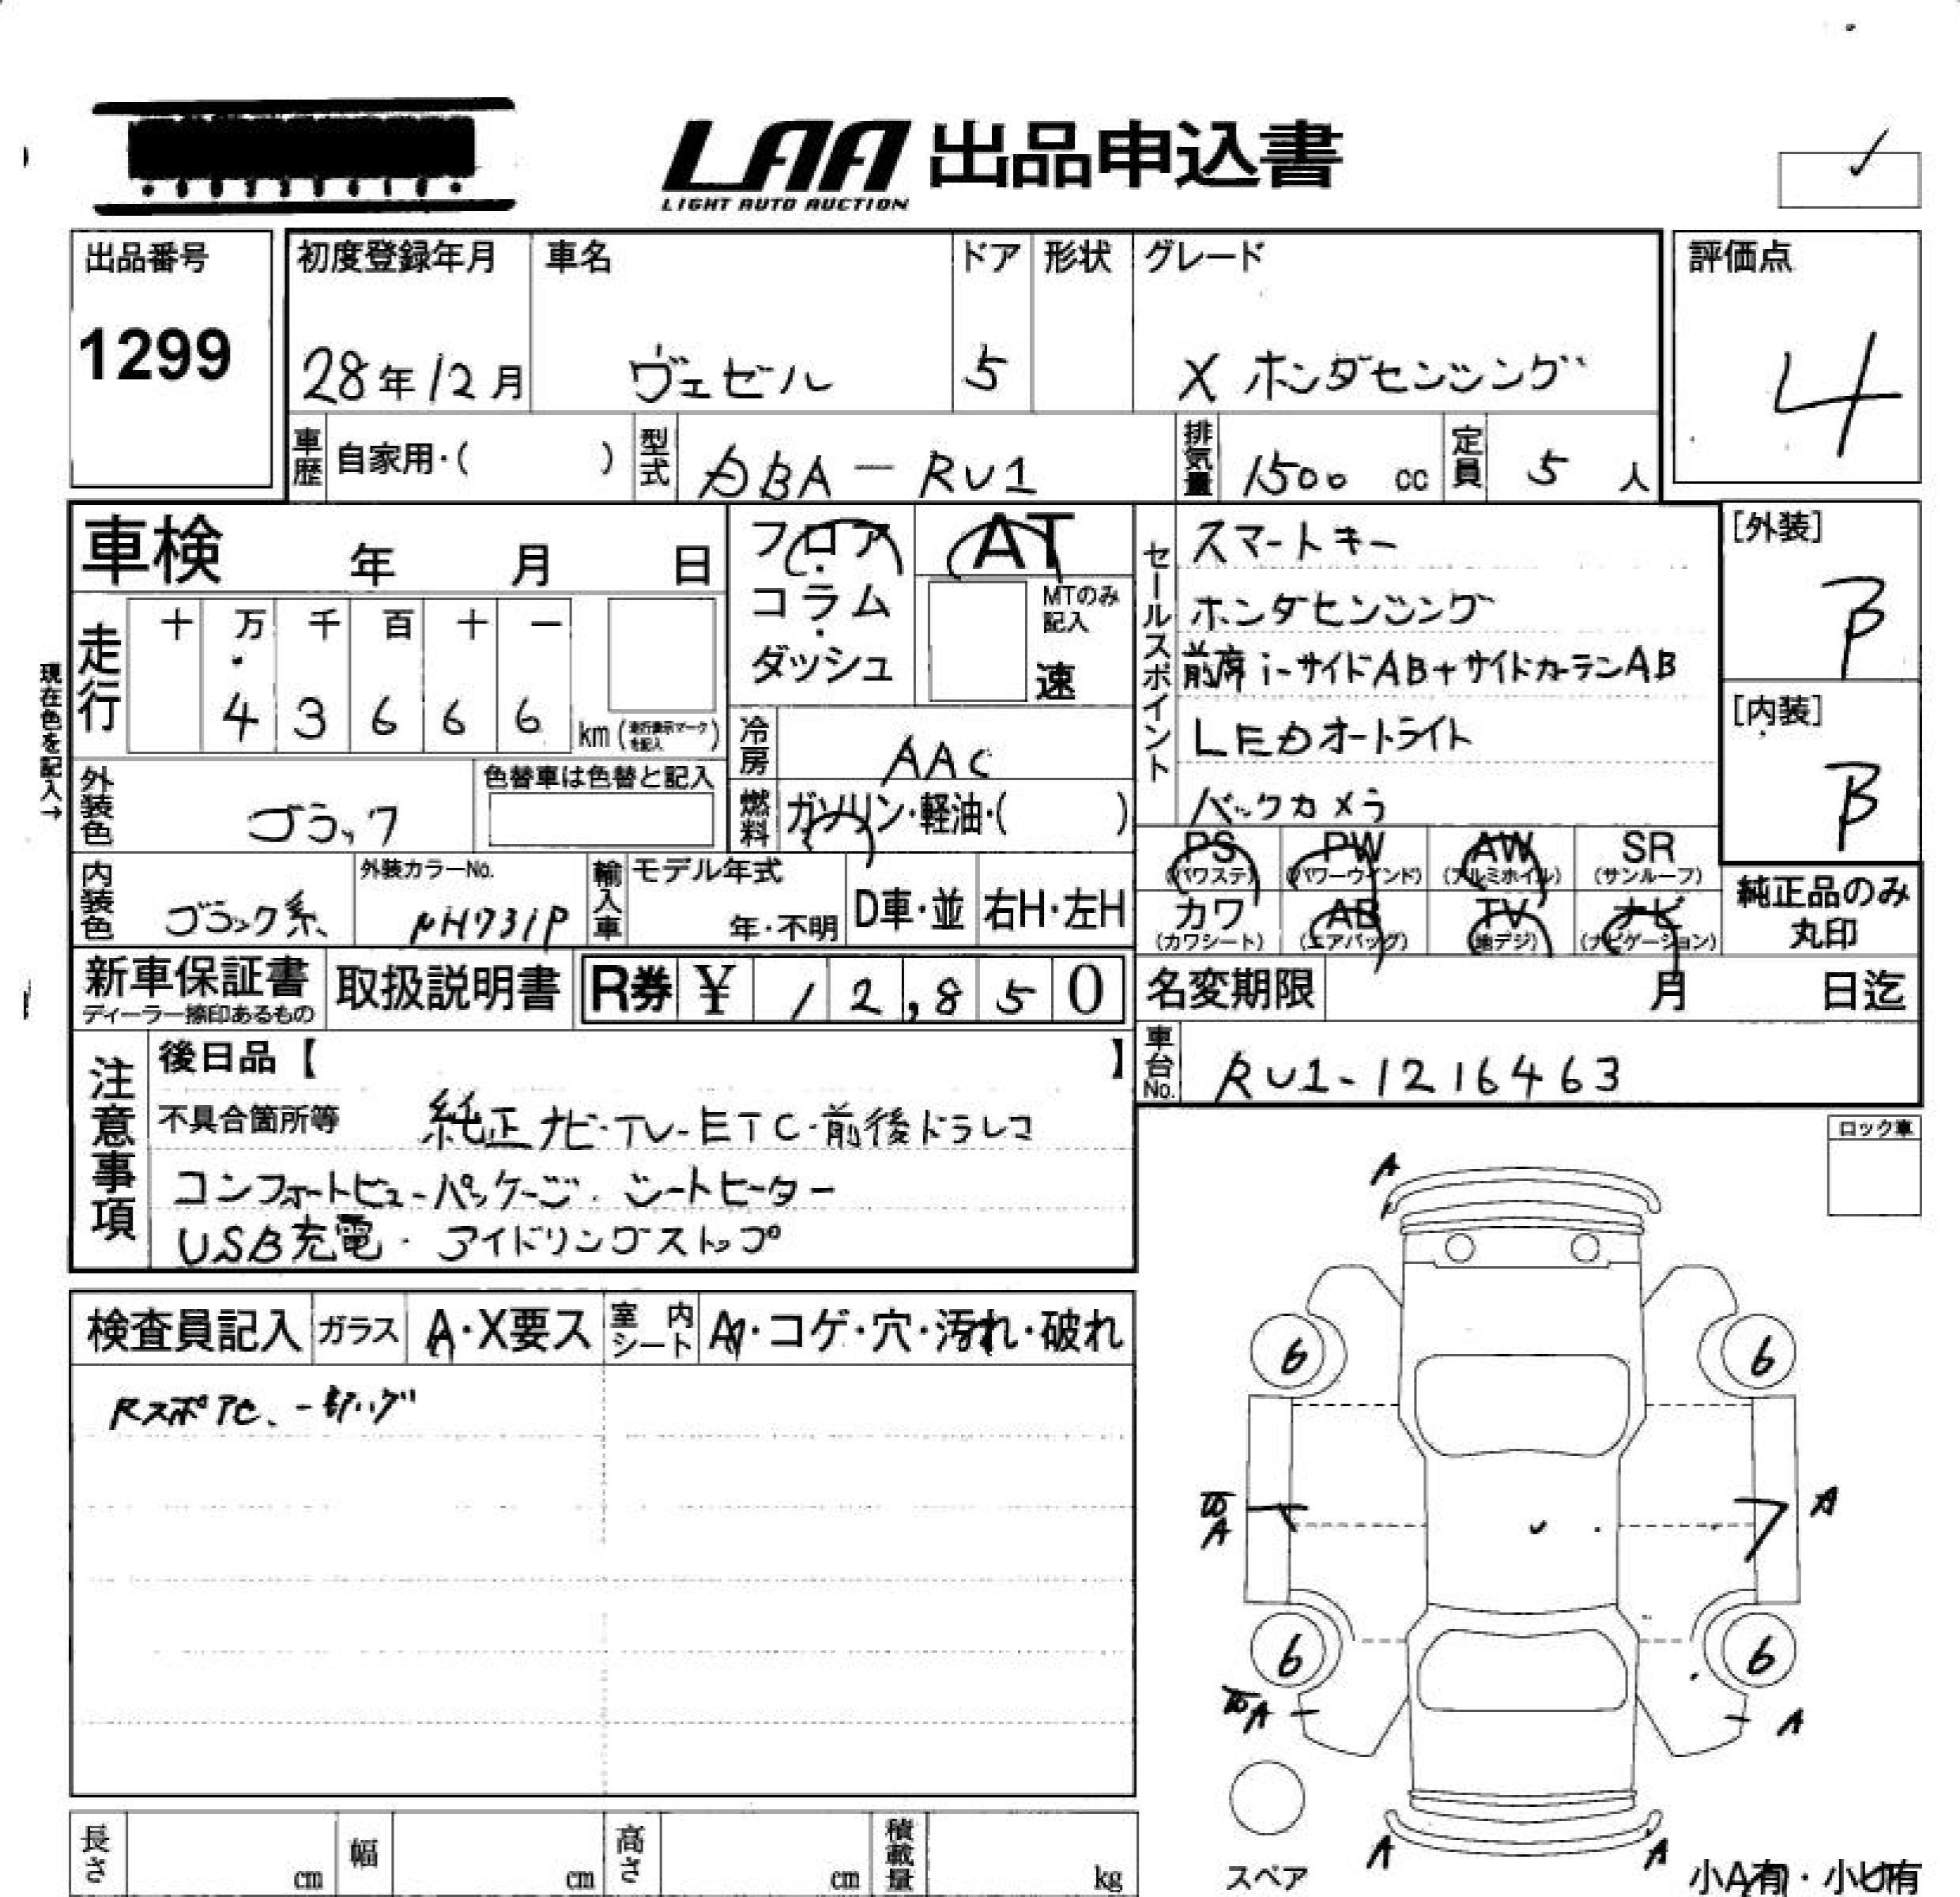 LAA 出品申込書
LIGHT AUTO AUCTION
出品番号
1299
初度登録年月 車名 ドア 形状 グレード
28年12月 ヴェゼル 5 X ホンダセンシング
評価点
4
車歴 自家用・( ) 型式 DBA-RU1 排気量 1500 cc 定員 5 人
車検 年 月 日
フロア・コラム・ダッシュ
AT
MTのみ記入
速
現在色を記入→
走行 十 万 千 百 十 一
4 3 6 6 6 km(走行表示マークを記入)
冷房 AAC
燃料 ガソリン・軽油・( )
外装色 ブラック
色替車は色替と記入
内装色 ブラック系
外装カラーNo.
NH731P
輸入車 モデル年式
年・不明 D車・並 右H・左H
セールスポイント
スマートキー
ホンダセンシング
前席i-サイドAB+サイドカーテンAB
LEDオートライト
バックカメラ
[外装]
B
[内装]
B
PS(パワステ) PW(パワーウインド) AW(アルミホイル) SR(サンルーフ)
カワ(カワシート) AB(エアバッグ) TV(地デジ) ナビ(ナビゲーション)
純正品のみ
丸印
新車保証書
ディーラー捺印あるもの
取扱説明書
R券 ¥ 12,850
名変期限 月 日迄
車台No. RU1-1216463
注意事項
後日品【 】
不具合箇所等 純正ナビ・TV-ETC・前後ドラレコ
コンフォートビューパッケージ・シートヒーター
USB充電・アイドリングストップ
ロック車
検査員記入 ガラス A・X要ス 室内シート A・コゲ・穴・汚れ・破れ
A
6 6
A A
6 6
A A
A A
スペア
小A有・小U有
長さ cm 幅 cm 高さ cm 積載量 kg